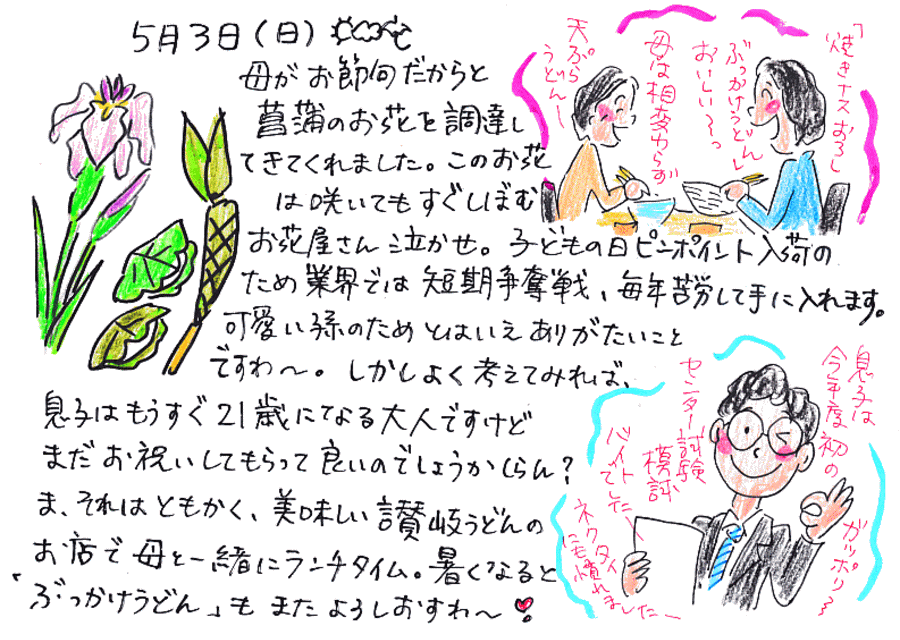 5月3日(日)
母がお節句だからと
菖蒲のお花を調達し
てきてくれました。このお花
は咲いてもすぐしぼむ
お花屋さん泣かせ。子どもの日ピンポイント入荷の
ため業界では短期争奪戦、毎年苦労して手に入れます。
可愛い孫のためとはいえありがたいこと
ですわ〜。しかしよく考えてみれば、
息子はもうすぐ21歳になる大人ですけど
まだお祝いしてもらって良いのでしょうかしらん?
ま、それはともかく、美味しい讃岐うどんの
お店で母と一緒にランチタイム。暑くなると
「ぶっかけうどん」もまたよろしおすわ〜
「焼きナスおろし
ぶっかけうどん」
おいしい〜っ
母は相変わらず
天ぷら
うどん〜
息子は
今年度初の
センター試験
模試
バイトでした〜
ネクタイ
にも慣れました〜
ガッポリ〜